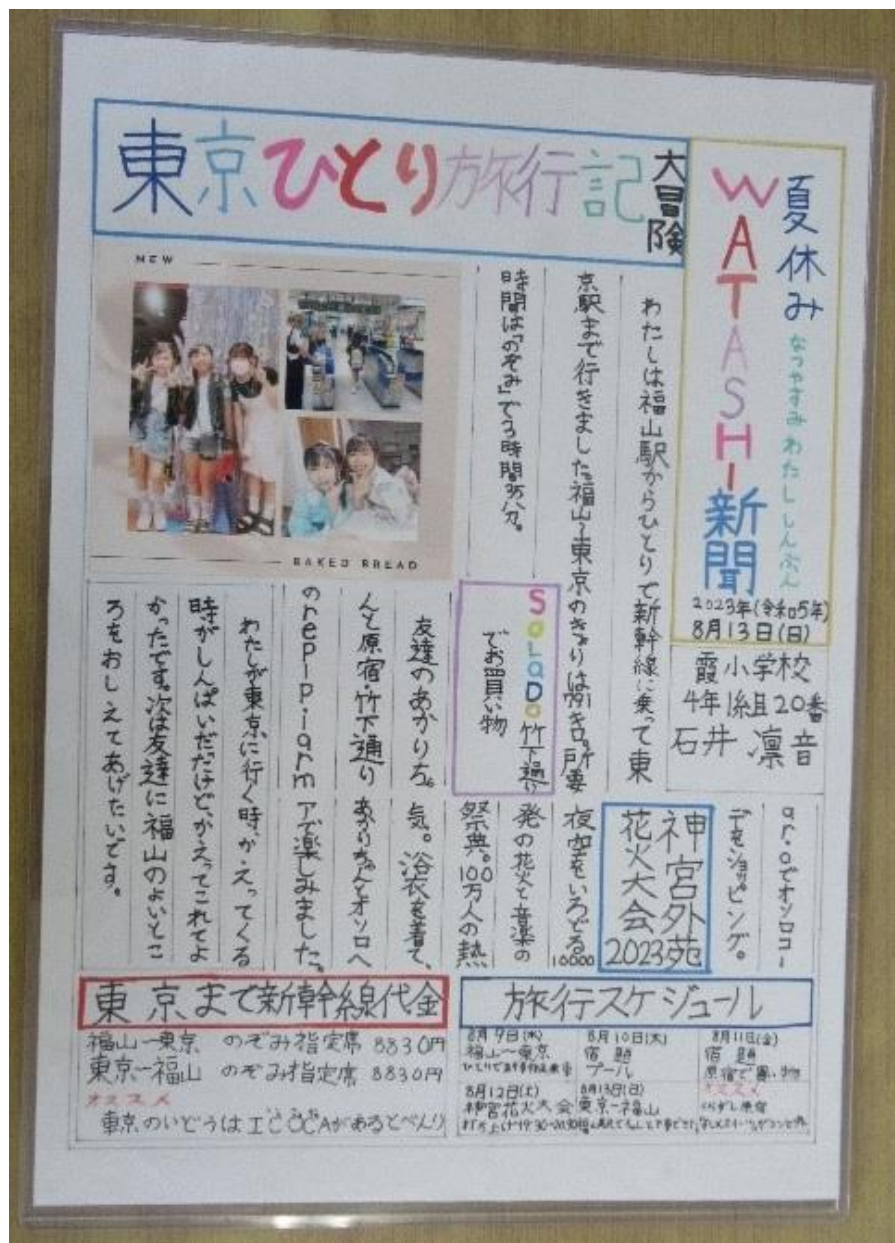 東京ひとり旅行記
大冒険
夏休み
WATASHI新聞
なつやすみ わたし しんぶん
2023年(令和5年)
8月13日(日)
霞小学校
4年1組20番
石井 凛音
NEW
BAKED BREAD
わたしは福山駅からひとりで新幹線に乗って東
京駅まで行きました。福山~東京のきょりは
所要
時間は「のぞみ」で3時間35分。
SoLaDo竹下通り
でお買い物
友達のあかりちゃ
んと原宿・竹下通り
のrepipiarm
arioでオソロコー
デをショッピング。
神宮外苑
花火大会2023
夜空をいろどる10000
発の花火と音楽の
祭典。100万人の熱
気。浴衣を着て、
あかりちゃんとオソロヘ
アで楽しみました。
わたしが東京に行く時、かえってくる
時がしんぱいだったけど、かえってこれてよ
かったです。次は友達に福山のよいとこ
ろをおしえてあげたいです。
東京まで新幹線代金
福山→東京 のぞみ指定席 8830円
東京→福山 のぞみ指定席 8830円
オススメ
東京のいどうはICOCAがあるとべんり
旅行スケジュール
8月9日(水)
福山→東京
8月10日(木)
宿題
プール
8月11日(金)
宿題
原宿で買い物
8月12日(土)
神宮花火大会
打ち上げ19:30~20:30
8月13日(日)
東京→福山
オススメ